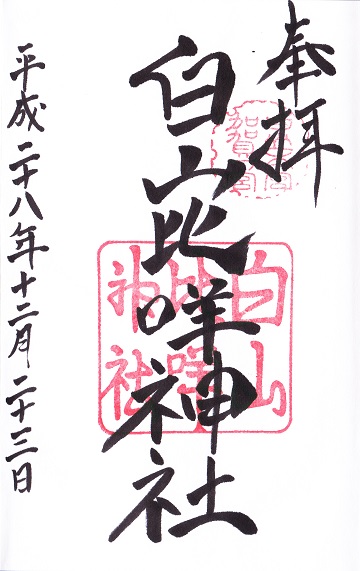 奉拝
白山比咩神社
平成二十八年十二月二十三日
白山
比咩
神社